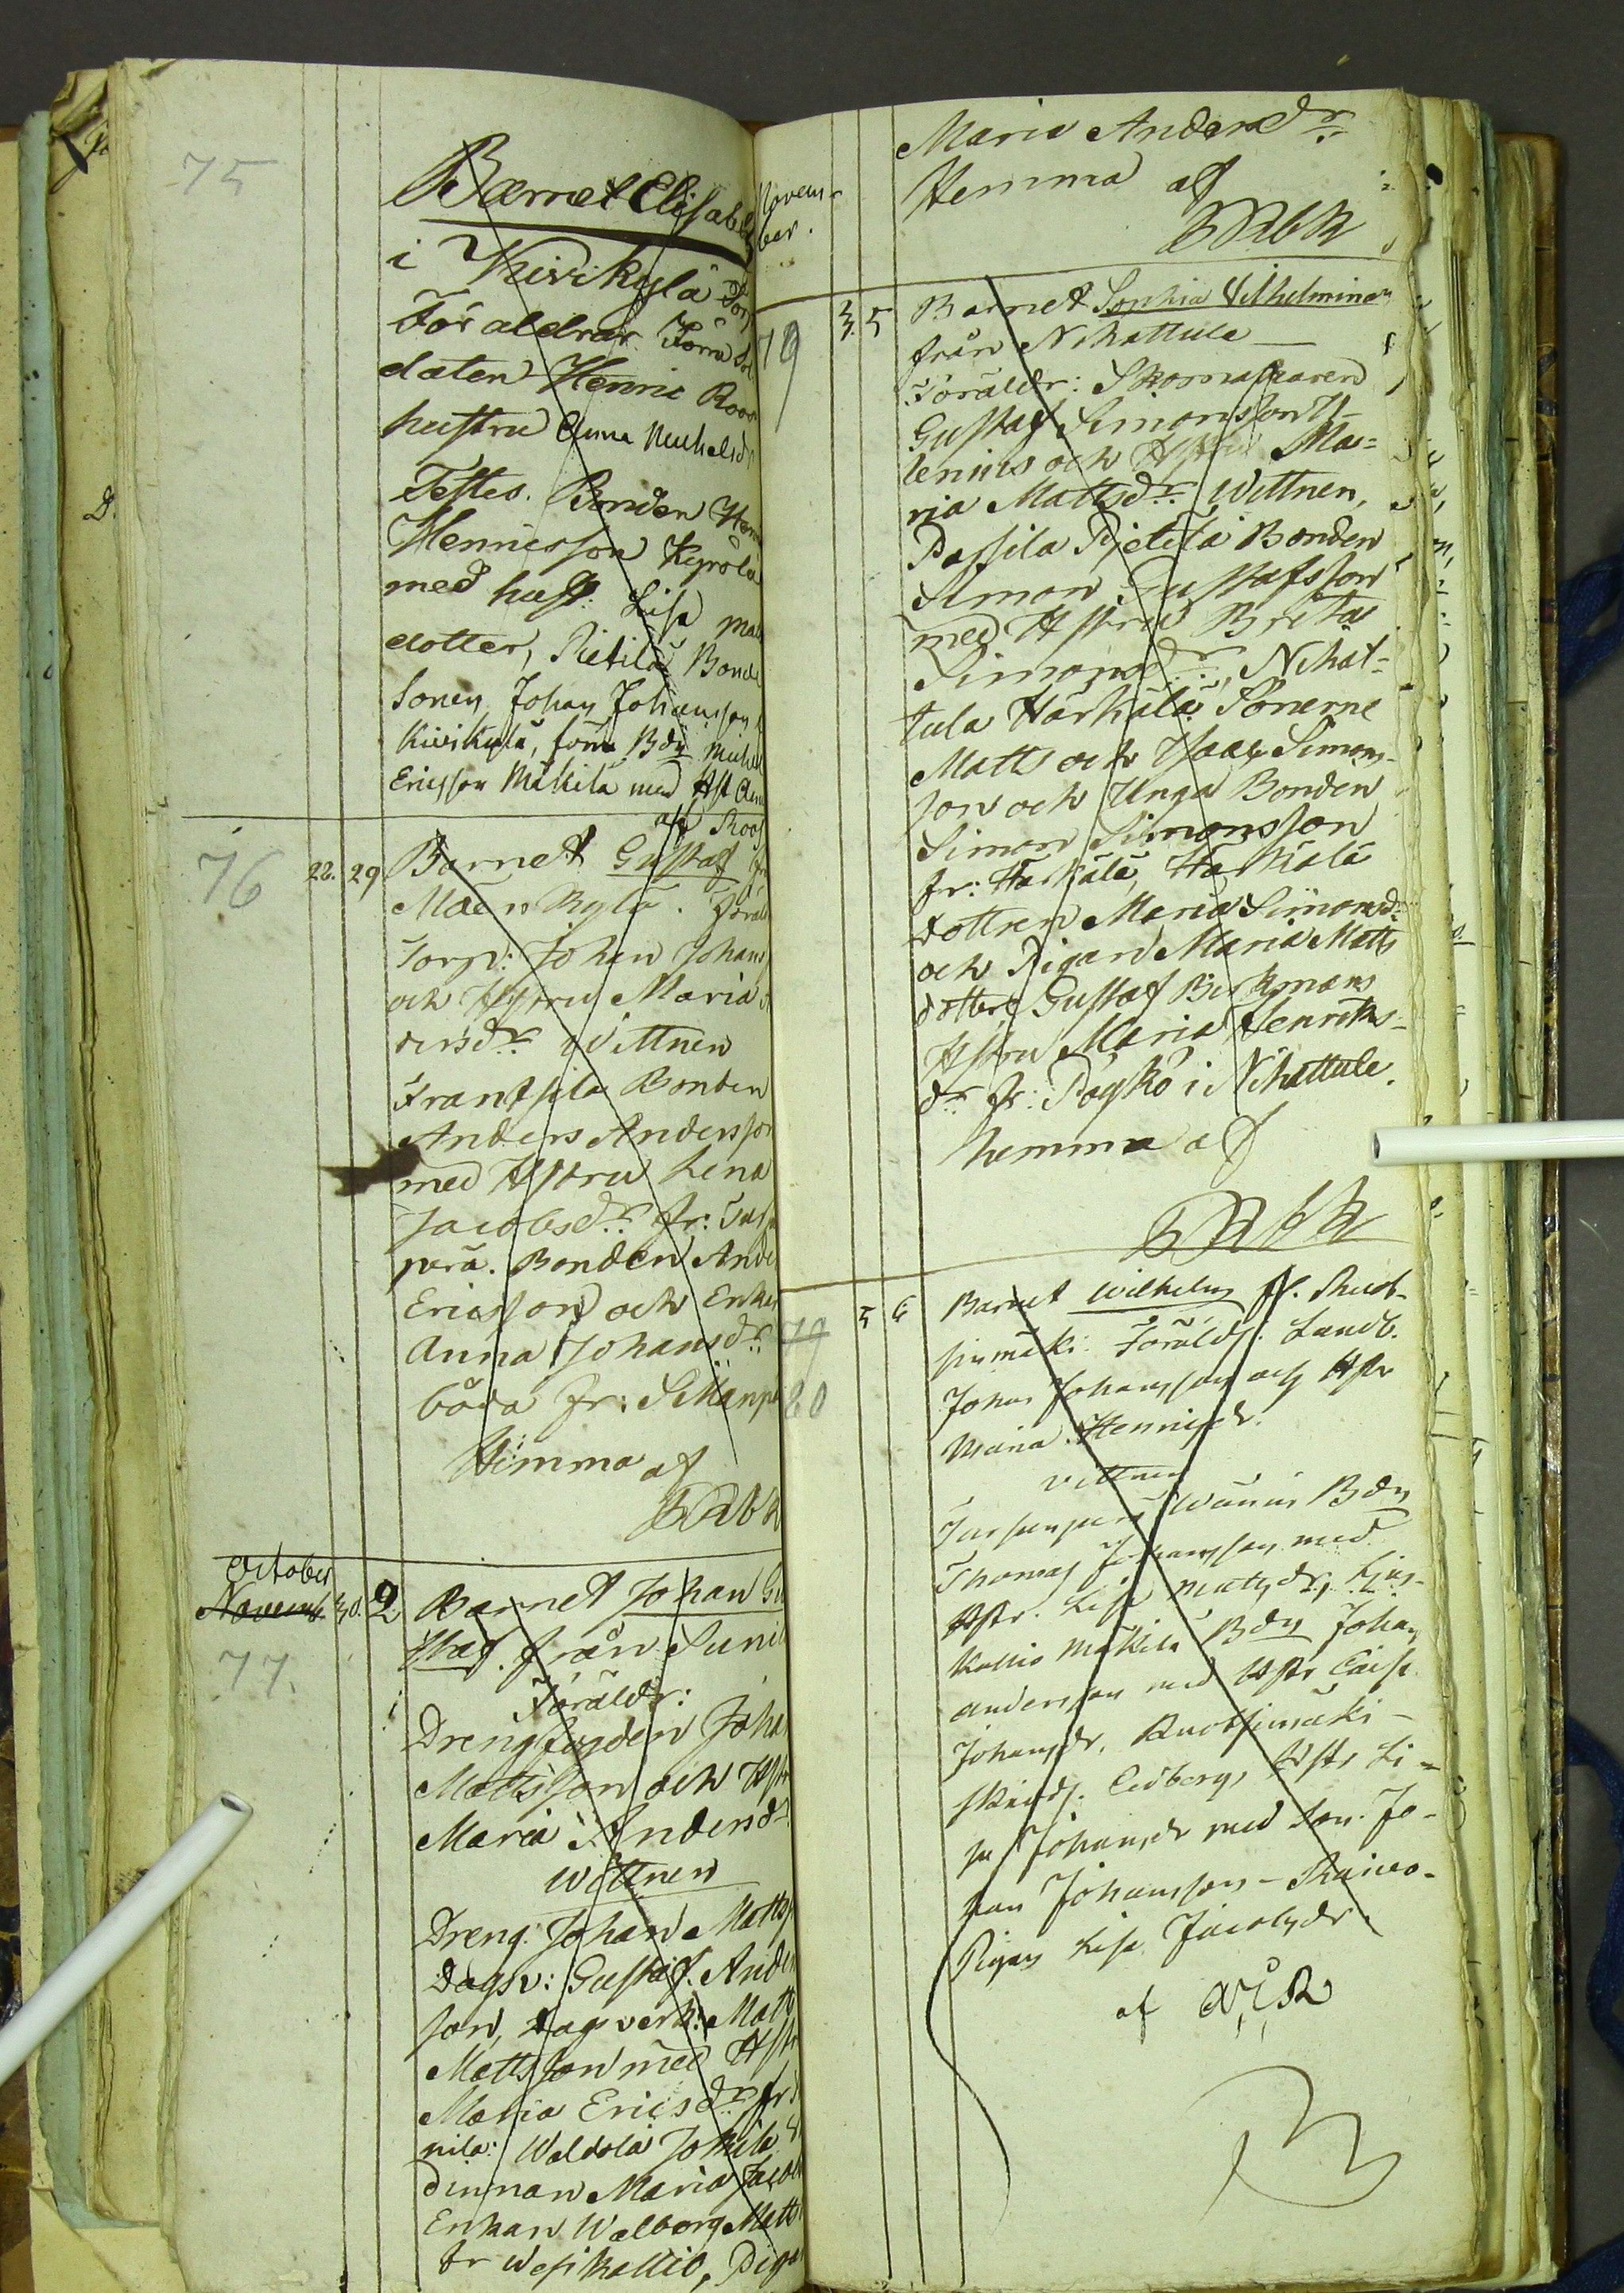 75
Barnet Elisabeth
i Kivikylä
Föräldrar Förra Sol
daten Henric Roos
hustru Anna Michelsdr
Testes. Bonden Hen
Henricsson Kyrölä
med hust: Lisa Matts
dotter, Pietilä Bonde
Sonen Johan Johansson
Kivikylä, förra Bdn Michel
Ericsson Mäkilä med Hst Anna
af Roos
76 22. 29 Barnet Gustaf fr
Mäenkylä. Föräld
Torp: Johan Johans
och Hustru Maria
dersdr Wittnen
Frantsila Bonden
Anders Andersson
med Hustru Lena
Jacobsdr fr:
perä. Bonden Ande
Ericsson och Enkan
Anna Johansdr
båda fr:
Hemma af
October
Novemb 30. 2 Barnet Johan Gu
staf. från Suni
77. Föräldr:
Drengfogden Joha
Mattsson och Hstr
Maria Andersdr
Wittnen
Dreng: Johan Matts
Dagsv: Gustaf Ander
son, Dagsverk: Matts
Mattsson med Hstr
Maria Ericsdr fr
nila: Waldola Jokila
dinnan Maria Jacob
Enkan Walborg Matts
fr Wesikallio, Piga
Novem-
ber.
Maria Andersdr
Hemma af
79 3 5 Barnet Sophia Vilhelmina
från Nihattula
Föräldr: Skomakaren
Gustaf Simonsson
lenius och Hstru Ma=
ria Mattsdr Wittnen,
Passila Pietilä Bonden
Simon Gustafsson
med Hstru Brita
Simonsdr, Nihat=
tula Härkälä Sönerne
Matts och Isaac Simons-
son och Unga Bonden
Simon Simonsson
fr: Härkälä, Härkälä
dottren Maria Simonsdr
och Pigan Maria Matts
dotter Gustaf Birkmans
Hstru Maria Henriks-
dr fr: Pöyskö i Nihattula.
hemma af
79
80 5 6 Barnet Wilhelm fr.
Föräldr: Landb.
Johan Johansson och Hstr
Maria Henricsdr.
vittnen
Bdn
Thomas Johansson med
Hstr. Lisa Mattsdr,
kallio Mäkilä Bdn Johan
Andersson med Hstr Caisa
Johansdr,
Skrädd. Cedbergs Hstr Li-
sa Johansdr med Son Jo-
han Johansson
Pigan Lisa Jacobsdr.
af